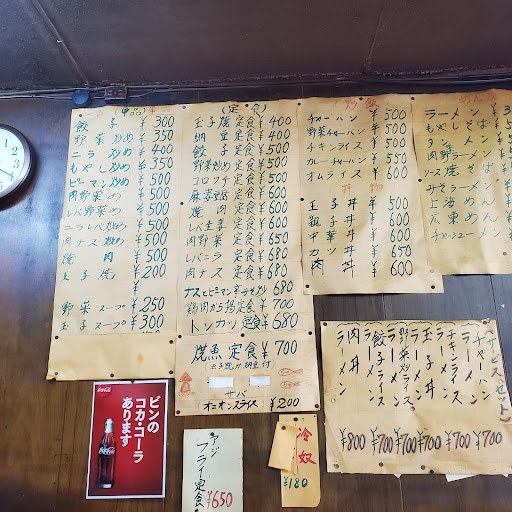 (単品)
餃子 ¥300
野菜炒め ¥350
ニラ炒め ¥400
もやし炒め ¥350
ピーマン炒め ¥500
肉野菜炒め ¥500
レバ野菜炒め ¥500
ニラレバ炒め ¥500
肉ナス炒め ¥500
焼肉 ¥500
玉子焼 ¥200
野菜スープ ¥250
玉子スープ ¥300
(定食)
玉子焼定食 ¥400
納豆定食 ¥400
餃子定食 ¥500
野菜炒め定食 ¥500
コロッケ定食 ¥500
麻婆豆腐定食 ¥600
焼肉定食 ¥600
レバ生姜定食 ¥600
肉野菜定食 ¥650
レバニラ定食 ¥680
肉ナス定食 ¥680
ナスとピーマン
¥680
鶏肉から揚定食 ¥700
トンカツ定食 ¥680
焼魚定食 ¥700
玉子焼か納豆付
サバ
オニオンスライス ¥200
炒飯
チャーハン ¥500
野菜チャーハン ¥500
チキンライス ¥500
カレーチャーハン ¥550
オムライス ¥600
丼物
玉子丼 ¥500
親子丼 ¥600
中華丼 ¥600
カツ丼 ¥650
肉丼 ¥600
ラーメン
もやしそば
タンメン
肉野菜ラーメン
ソース焼そば
みそラーメン
上海めん
広東めん
チャーシューメン
(サービスセット)
チャーハン ラーメン ¥700
チキンライス ラーメン ¥700
玉子丼 ラーメン ¥700
野菜炒め ラーメン ¥700
餃子 ラーメン ¥700
肉丼 ラーメン ¥800
Coca-Cola
ビンの
コカ・コーラ
あります
Coca-Cola
アジフライ定食 ¥650
冷奴
¥180